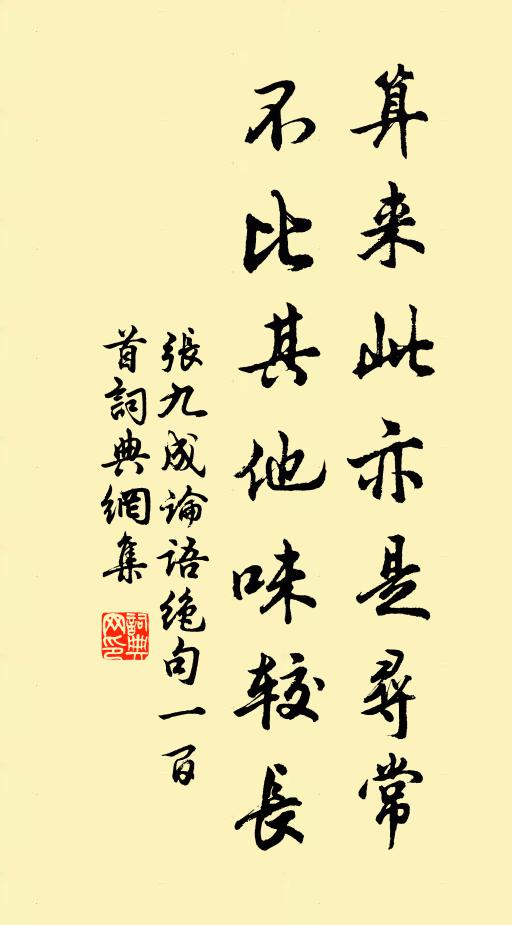 算来此亦是尋常
不比其他味较長
張九成論語绝句一百
首詞典網集
詞典网印